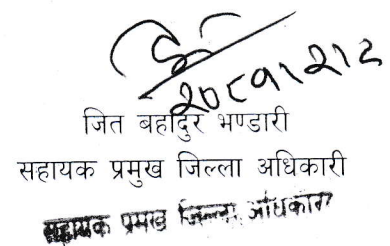 २०८१।२।८
जित बहादुर भण्डारी
सहायक प्रमुख जिल्ला अधिकारी
सहायक प्रमुख जिल्ला अधिकारी